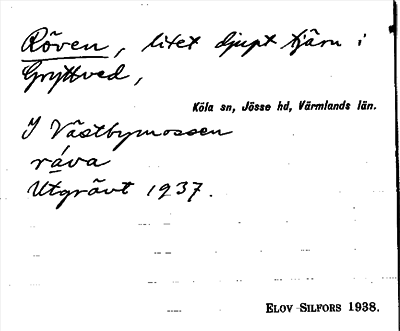 Röven, litet djupt tjärn i
Gryttved,
Köla sn, Jösse hd, Värmlands län.
I Västbymossen
råva
Utgrävt 1937.
ELOV SILFORS 1938.